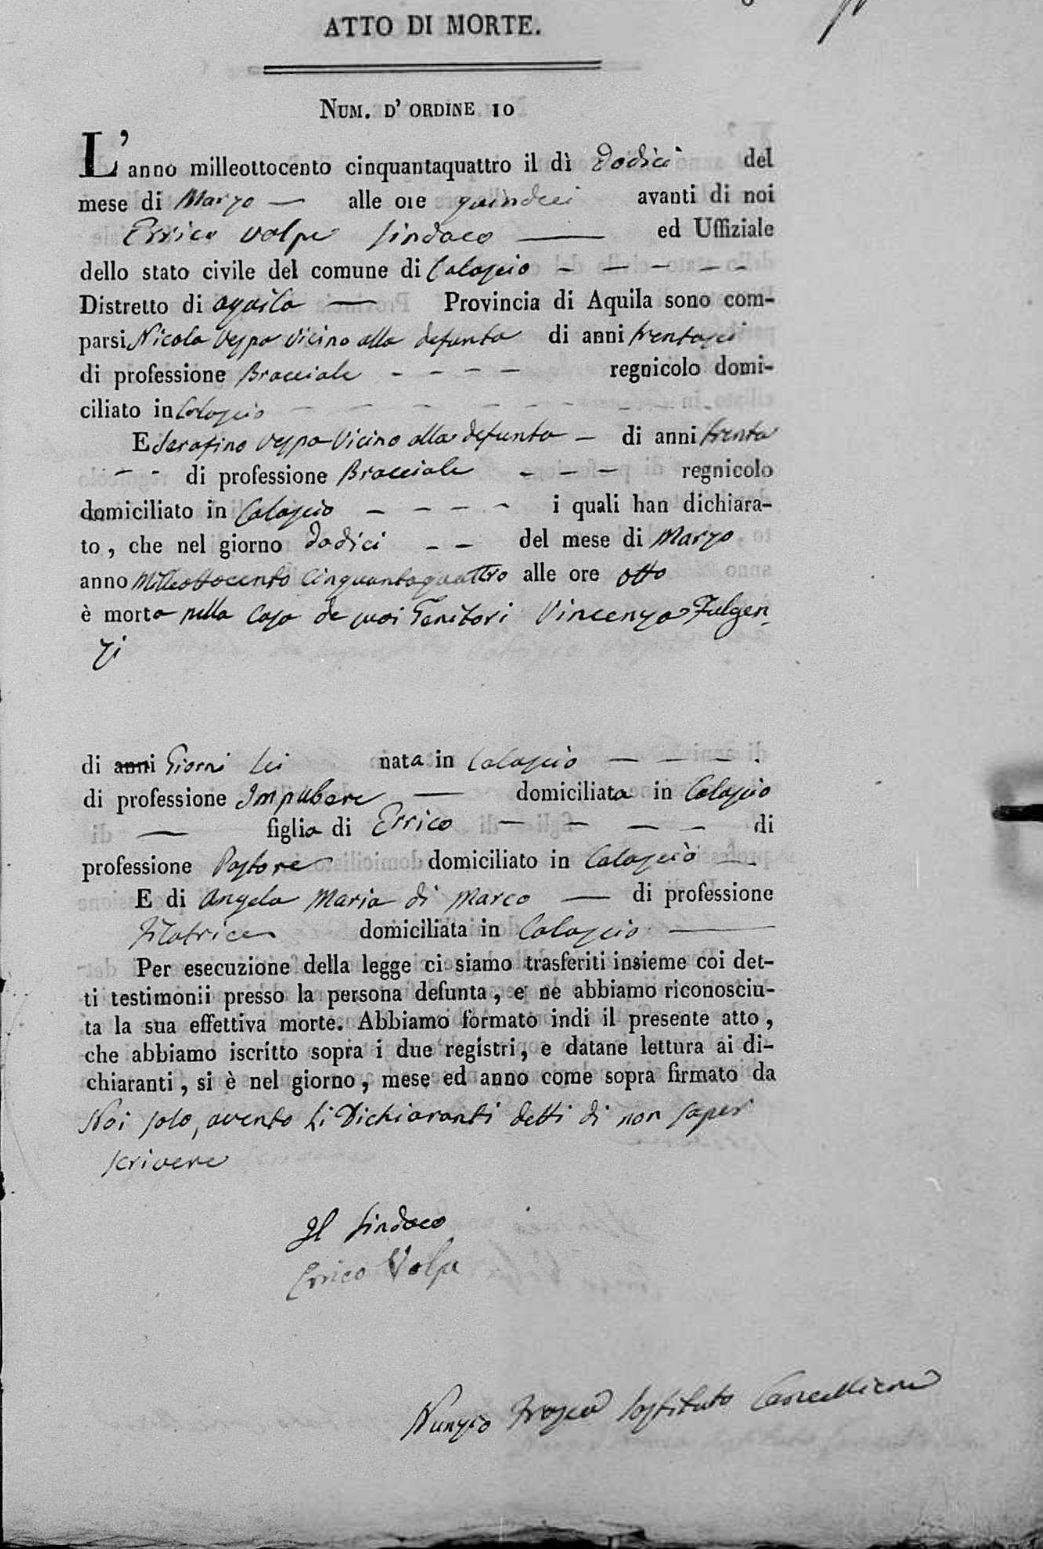 ATTO DI MORTE.
NUM. D' ORDINE 10
L'anno milleottocento cinquantaquattro il dì Dodici del
mese di Marzo — alle ore quindeci avanti di noi
Errico Volpe Sindaco — ed Uffiziale
dello stato civile del comune di Calascio - - - - -
Distretto di Aquila — Provincia di Aquila sono com-
parsi Nicola Vespa Vicino alla defunta di anni trentasei
di professione Bracciale - - - - regnicolo domi-
ciliato in Calascio - - - - - - -
E Serafino Vespa Vicino alla defunta - di anni trenta
- - di professione Bracciale - - - regnicolo
domiciliato in Calascio - - - - i quali han dichiara-
to, che nel giorno dodici - - del mese di Marzo
anno Milleottocento cinquantaquattro alle ore otto
è morta nella Casa de suoi Genitori Vincenza Fulgen-
zi
di anni Giorni sei nata in Calascio - - - -
di professione Impubere — domiciliata in Calascio
— figlia di Errico - - - - di
professione Pastore domiciliato in Calascio —
E di Angela Maria di Marco — di professione
Filatrice domiciliata in Calascio —
Per esecuzione della legge ci siamo trasferiti insieme coi det-
ti testimonii presso la persona defunta, e ne abbiamo riconosciu-
ta la sua effettiva morte. Abbiamo formato indi il presente atto,
che abbiamo iscritto sopra i due registri, e datane lettura ai di-
chiaranti, si è nel giorno, mese ed anno come sopra firmato da
Noi solo, avento li Dichiaranti detti di non saper
scrivere
Il Sindaco
Errico Volpe
Nunzio Frasca Sostituto Cancelliere